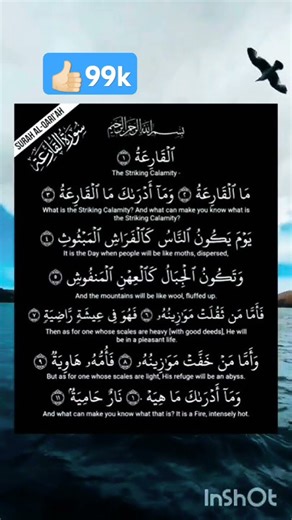 👍🏻99k
SURAH AL-QARI'AH
سورة القارعة
بِسْمِ اللَّهِ الرَّحْمَٰنِ الرَّحِيمِ
الْقَارِعَةُ ١
The Striking Calamity -
مَا الْقَارِعَةُ ٢ وَمَآ أَدْرَىٰكَ مَا الْقَارِعَةُ ٣
What is the Striking Calamity? And what can make you know what is
the Striking Calamity?
يَوْمَ يَكُونُ النَّاسُ كَالْفَرَاشِ الْمَبْثُوثِ ٤
It is the Day when people will be like moths, dispersed,
وَتَكُونُ الْجِبَالُ كَالْعِهْنِ الْمَنفُوشِ ٥
And the mountains will be like wool, fluffed up.
فَأَمَّا مَن ثَقُلَتْ مَوَٰزِينُهُۥ ٦ فَهُوَ فِى عِيشَةٍ رَّاضِيَةٍ ٧
Then as for one whose scales are heavy [with good deeds], He will
be in a pleasant life.
وَأَمَّا مَنْ خَفَّتْ مَوَٰزِينُهُۥ ٨ فَأُمُّهُۥ هَاوِيَةٌ ٩
But as for one whose scales are light, His refuge will be an abyss.
وَمَآ أَدْرَىٰكَ مَا هِيَهْ ١٠ نَارٌ حَامِيَةٌۢ ١١
And what can make you know what that is? It is a Fire, intensely hot.
InShOt